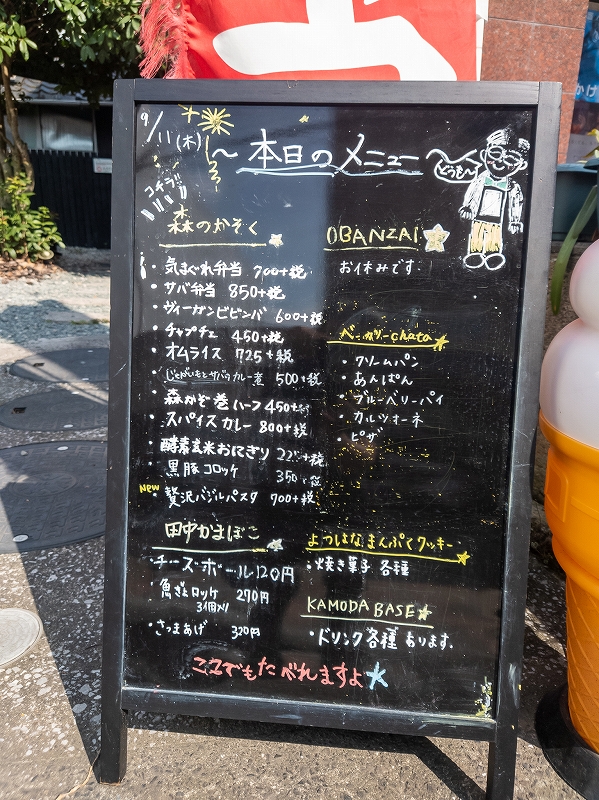 9/11(木)
～本日のメニュー～
コチラ!!
森のかぞく
・気まぐれ弁当 700+税
・サバ弁当 850+税
・ヴィーガンビビンバ 600+税
・チャプチェ 450+税
・オムライス 725+税
・じゃがいもとサバのカレー煮 500+税
・森かぞ巻ハーフ 450+税
・スパイスカレー 800+税
・酵素玄米おにぎり 225+税
・黒豚コロッケ 350+税
New
・贅沢バジルパスタ 900+税
田中かまぼこ
・チーズ・ボール 120円
・魚ぎょロッケ 270円
3個入り
・さつまあげ 320円
OBANZAI
お休みです
ベーカリーchata
・クリームパン
・あんぱん
・ブルーベリーパイ
・カルツォーネ
・ピザ
よつはな、まんぷくクッキー
・焼き菓子 各種
KAMODA BASE
・ドリンク各種 あります。
ここでもたべれますよ